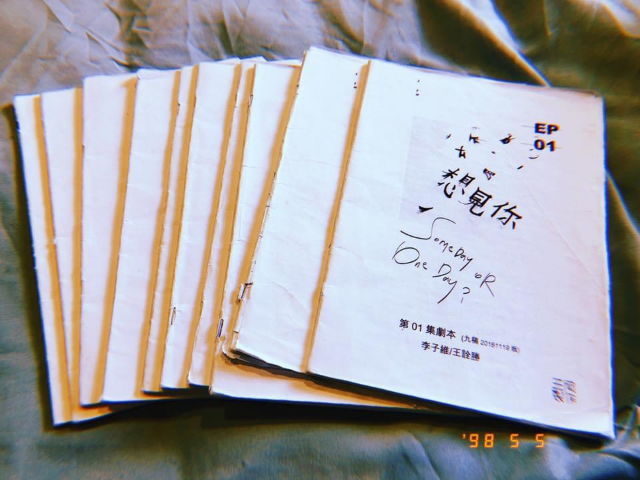 EP
01
想見你
SOMEDAY OR
ONE DAY?
第 01 集劇本 (九稿 20181119 版)
李子維/王詮勝
'98 5 5